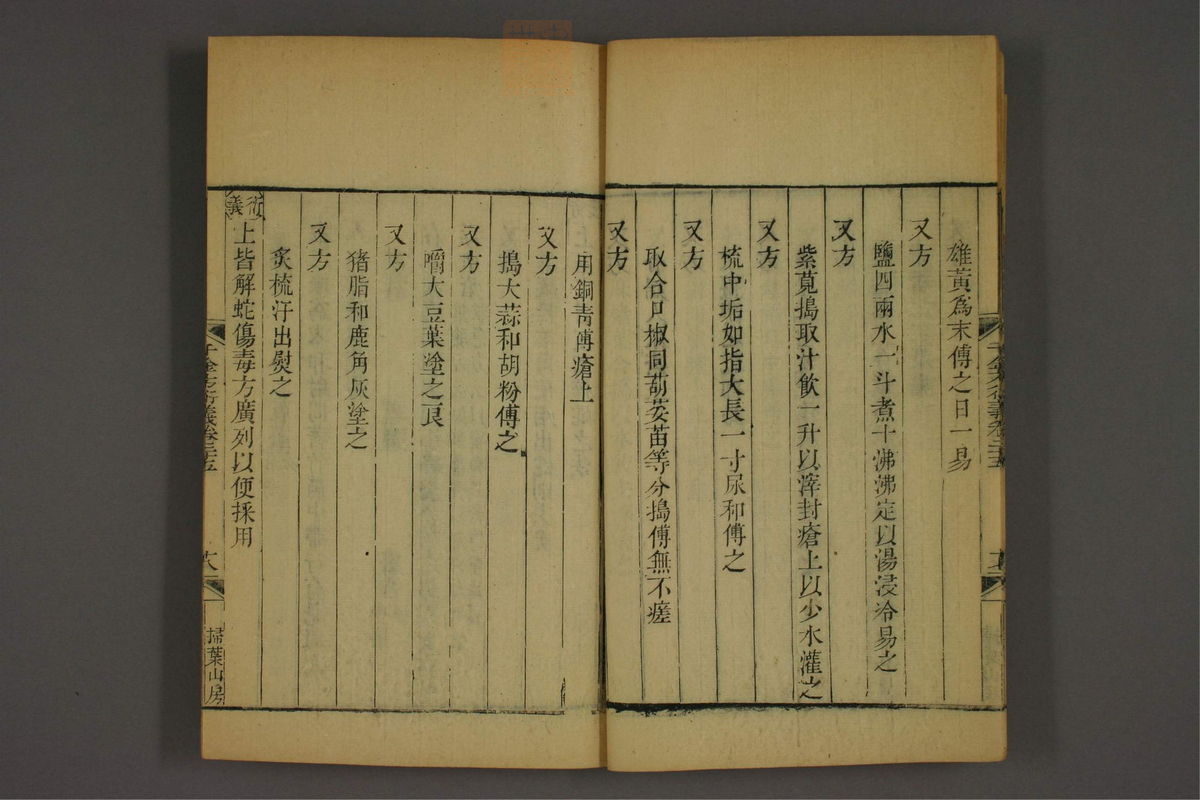 雄黃爲末傅之日一易
又方
鹽四兩水一斗煮十沸沸定以湯浸冷易之
又方
紫莧搗取汁飲一升以滓封瘡上以少水灌之
又方
梳中垢如指大長一寸尿和傅之
又方
取合口椒同葫荽苗等分搗傅無不瘥
又方
用銅青傅瘡上
又方
搗大蒜和胡粉傅之
又方
嚼大豆葉塗之良
又方
猪脂和鹿角灰塗之
又方
炙梳汗出熨之
衍義
上皆解蛇傷毒方廣列以便採用
千金方衍義卷二十五
掃葉山房